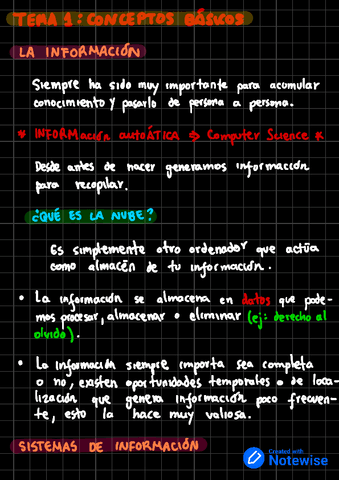 TEMA 1: CONCEPTOS BÁSICOS
LA INFORMACIÓN
Siempre ha sido muy importante para acumular
conocimiento y pasarlo de persona a persona.
* INFORMación autoÁTICA => Computer Science *
Desde antes de nacer generamos información
para recopilar.
¿QUÉ ES LA NUBE?
Es simplemente otro ordenador que actúa
como almacén de tu información.
• La información se almacena en datos que pode-
mos procesar, almacenar o eliminar (ej: derecho al
olvido).
• La información siempre importa sea completa
o no, existen oportunidades temporales o de loca-
lización que genera información poco frecuen-
te, esto la hace muy valiosa.
SISTEMAS DE INFORMACIÓN
Created with
Notewise